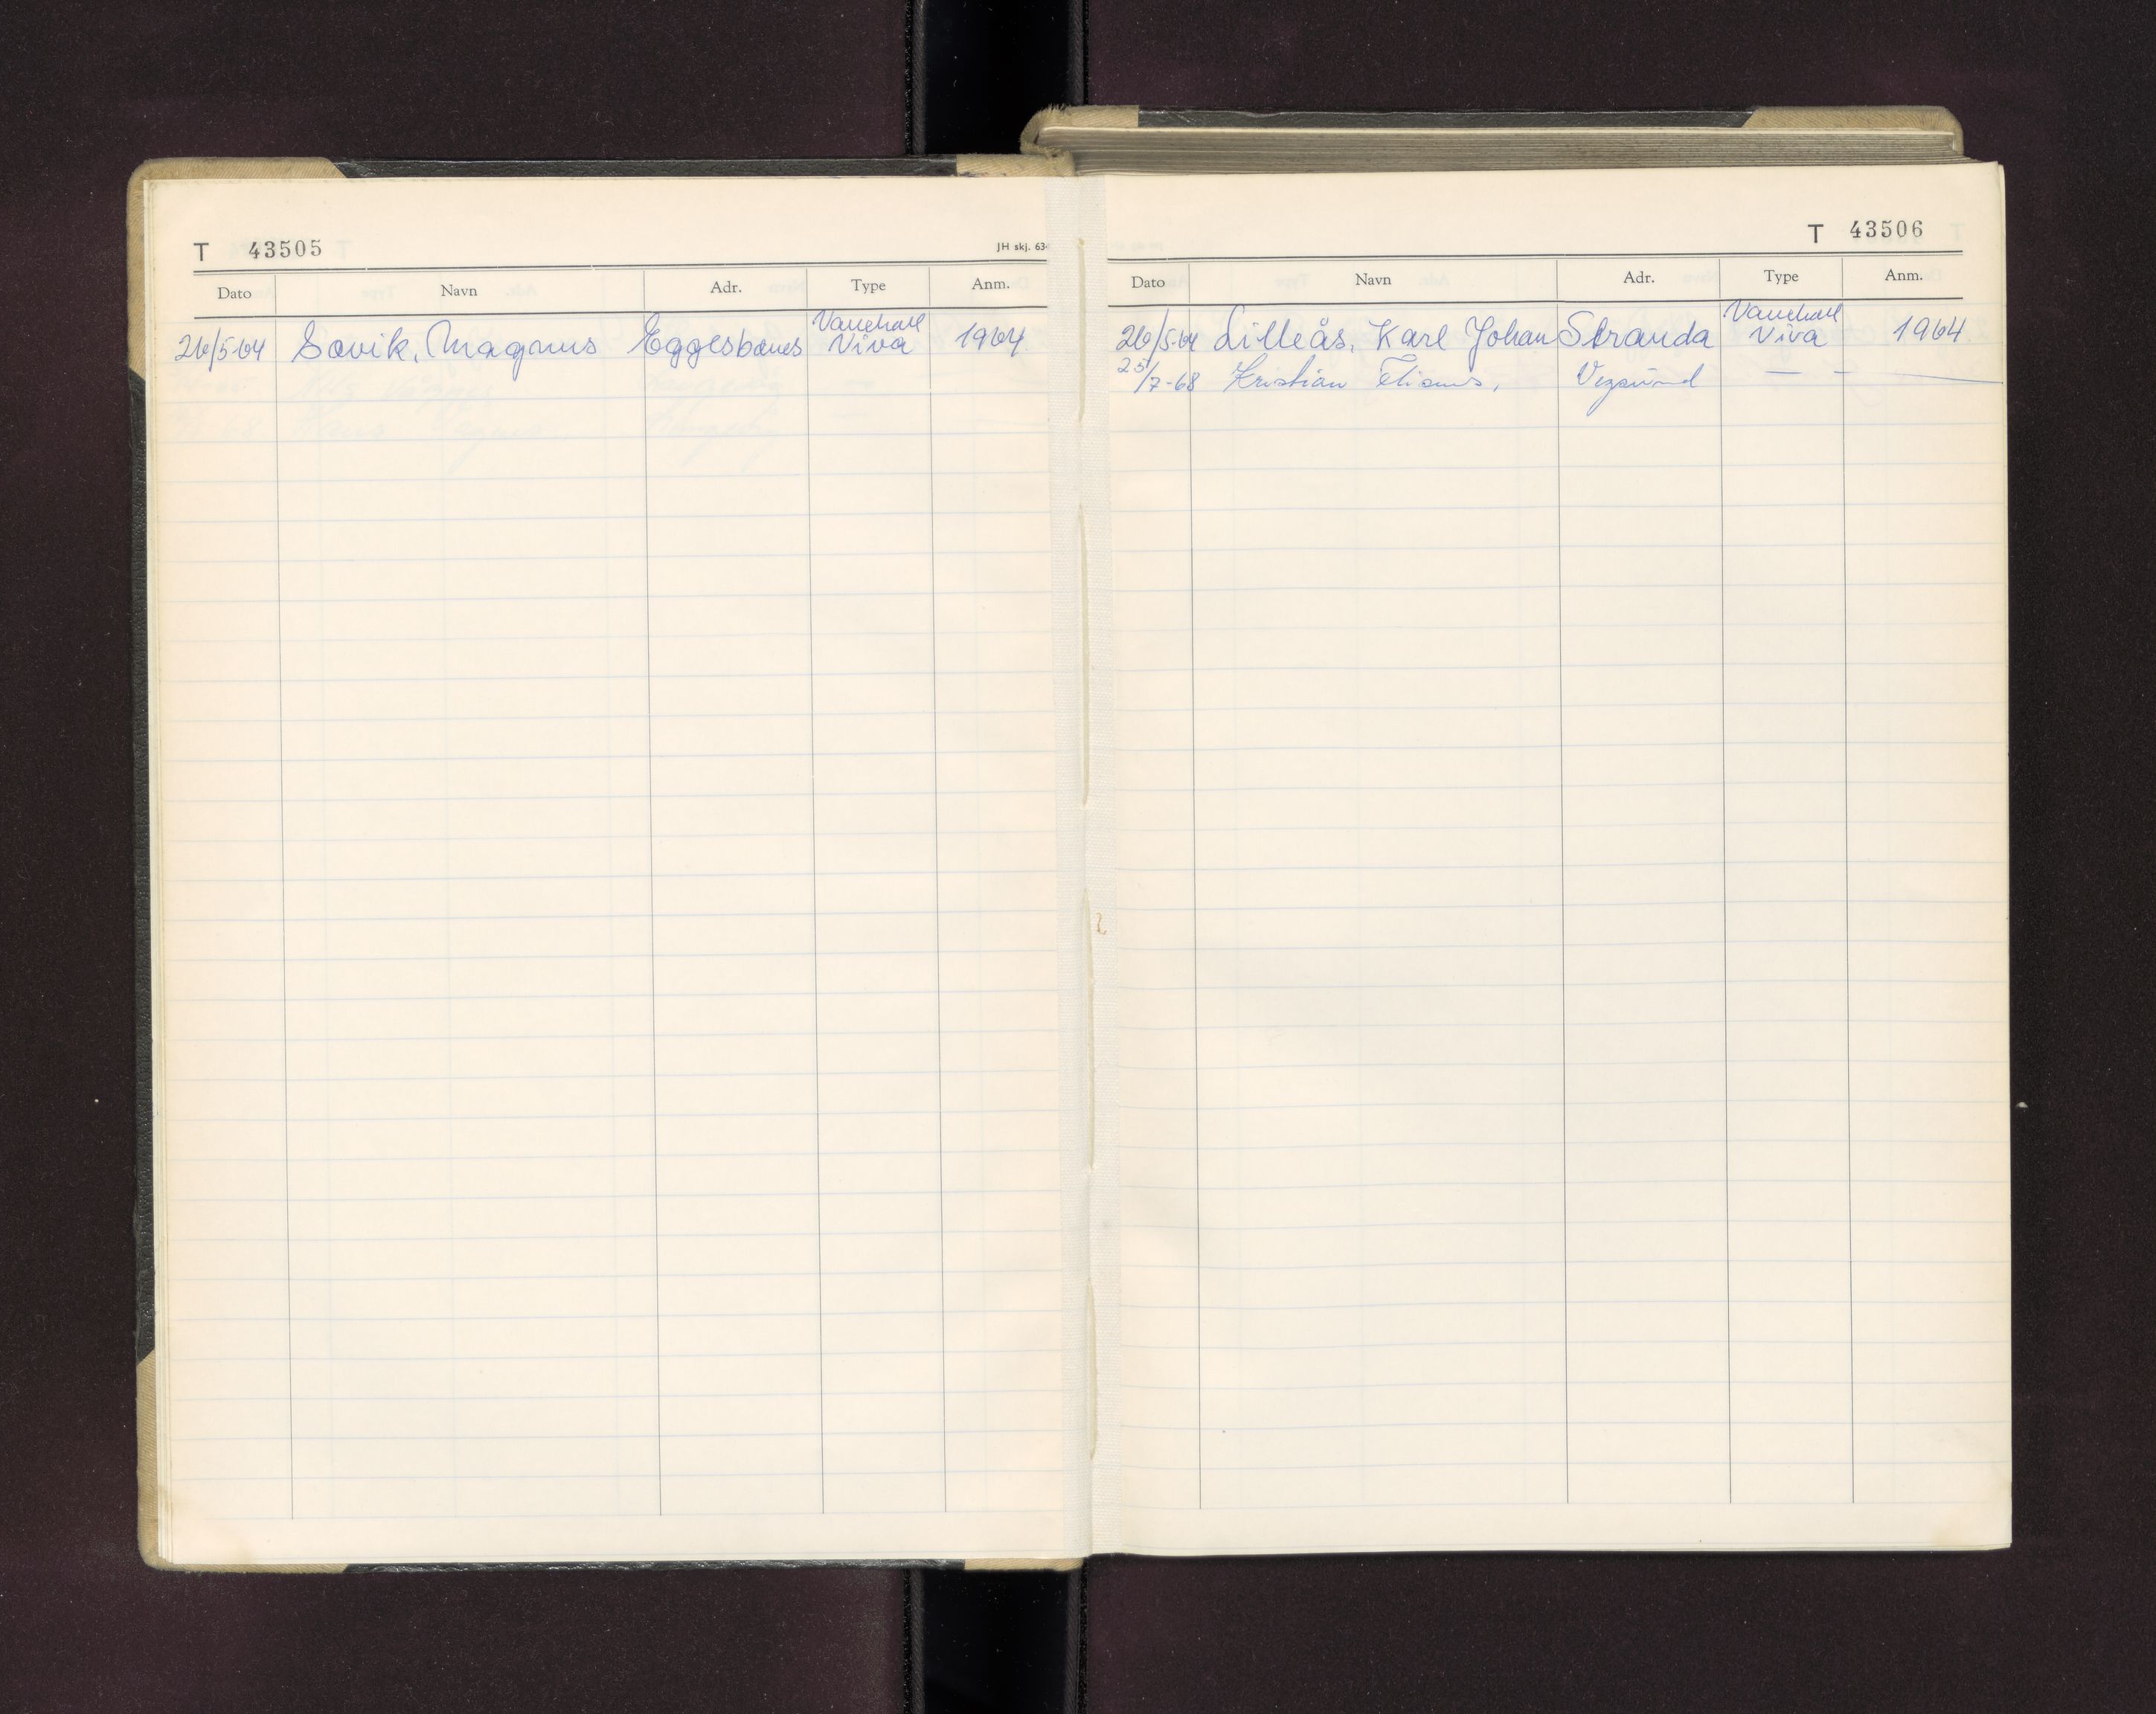 T 43505
JH skj. 63
Dato Navn Adr. Type Anm.
26/5-64 Søvik, Magnus Eggesbønes Vauxhall Viva 1964
T 43506
Dato Navn Adr. Type Anm.
26/5-64 Lilleås, Karl Johan Stranda Vauxhall Viva 1964
25/7-68 Kristian Vegsund — " —